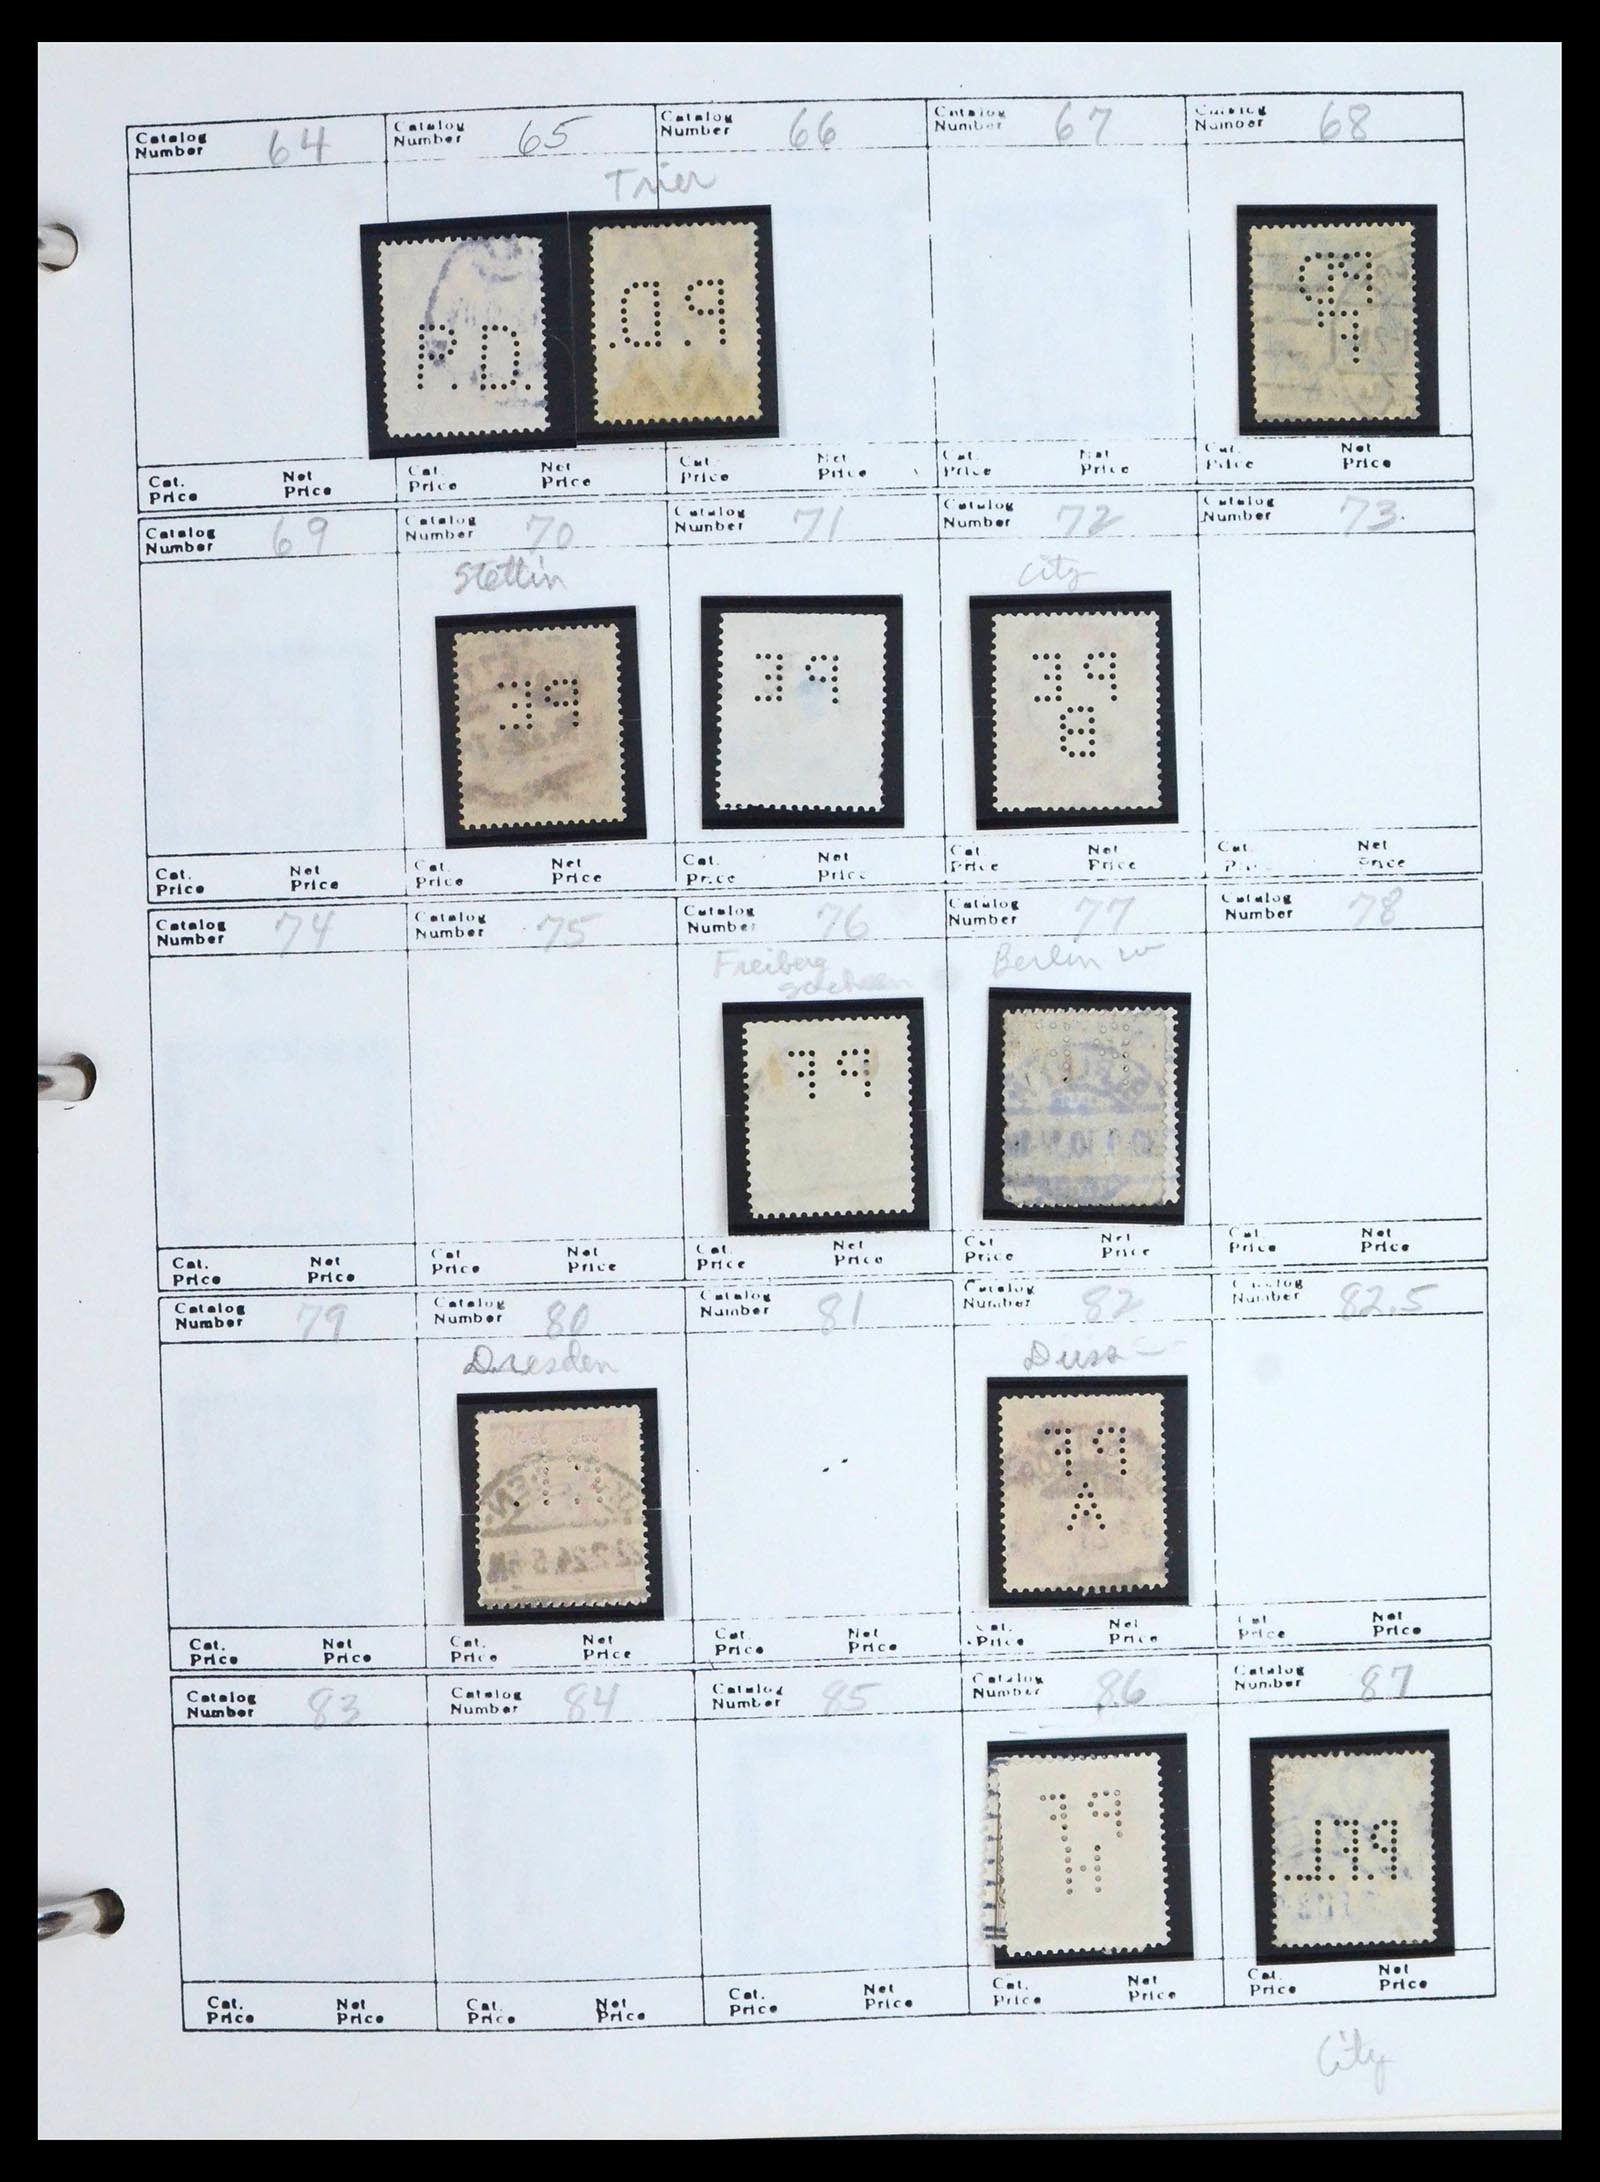 Catalog Number 64 Catalog Number 65 Catalog Number 66 Catalog Number 67 Catalog Number 68
Trier
P.D. P.D.
Cat. Price Net Price Cat. Price Net Price Cat. Price Net Price Cat. Price Net Price Cat. Price Net Price
Catalog Number 69 Catalog Number 70 Catalog Number 71 Catalog Number 72 Catalog Number 73.
Stettin City
PE PE PE
B
Cat. Price Net Price Cat. Price Net Price Cat. Price Net Price Cat. Price Net Price Cat. Price Net Price
Catalog Number 74 Catalog Number 75 Catalog Number 76 Catalog Number 77 Catalog Number 78
Freiberg Berlin W
Sachsen
PF
Cat. Price Net Price Cat. Price Net Price Cat. Price Net Price Cat. Price Net Price Cat. Price Net Price
Catalog Number 79 Catalog Number 80 Catalog Number 81 Catalog Number 82 Catalog Number 82.5
Dresden Düss
PF
A
Cat. Price Net Price Cat. Price Net Price Cat. Price Net Price Cat. Price Net Price Cat. Price Net Price
Catalog Number 83 Catalog Number 84 Catalog Number 85 Catalog Number 86 Catalog Number 87
PF P.F.L.
H
Cat. Price Net Price Cat. Price Net Price Cat. Price Net Price Cat. Price Net Price Cat. Price Net Price
City